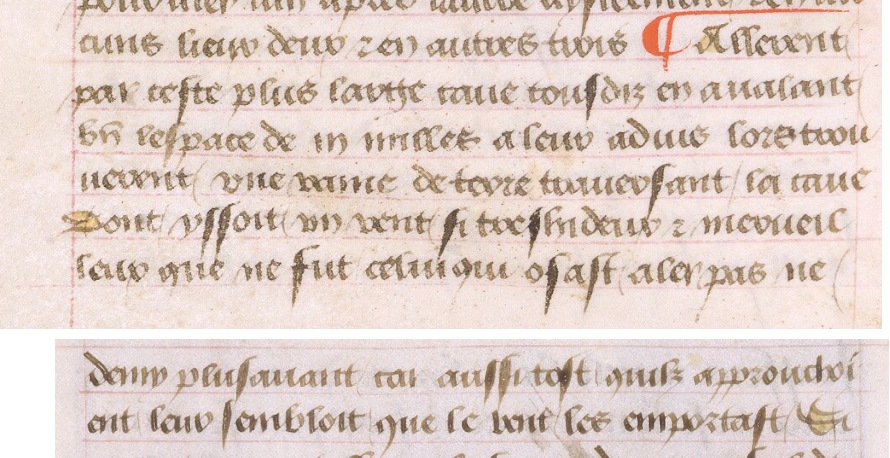 cuns lieux deux ⁊ en autres trois ¶ Allerent
par ceste plus large cave tousdiz en avalant
bn lespace de iii milles a leur advis lors trou
verent vne vaine de terre traversant la cave
Dont yssoit vn vent si tres hideux ⁊ merveil
leux que ne fut celui qui osast aler pas ne
demy plus avant car aussi tost quilz approuchoi
ent leur sembloit que le vent les emportast Si